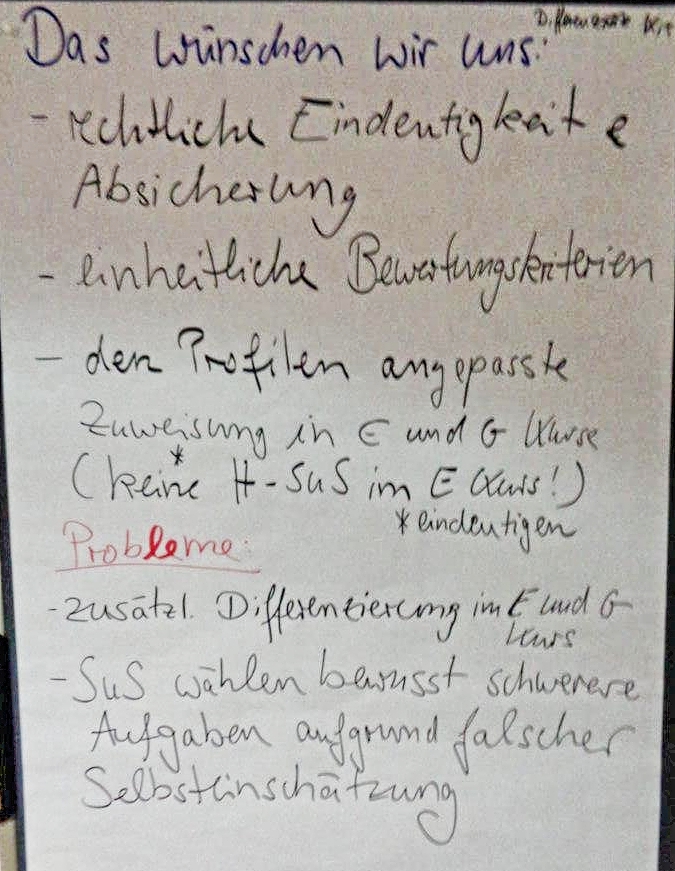 Das wünschen wir uns:
- rechtliche Eindeutigkeit &
Absicherung
- einheitliche Bewertungskriterien
- den Profilen angepasste
Zuweisung in E und G Kurse
(keine* H-SuS im E Kurs!)
*eindeutigen
Probleme:
- zusätzl. Differenzierung im E und G
kurs
- SuS wählen bewusst schwerere
Aufgaben aufgrund falscher
Selbsteinschätzung